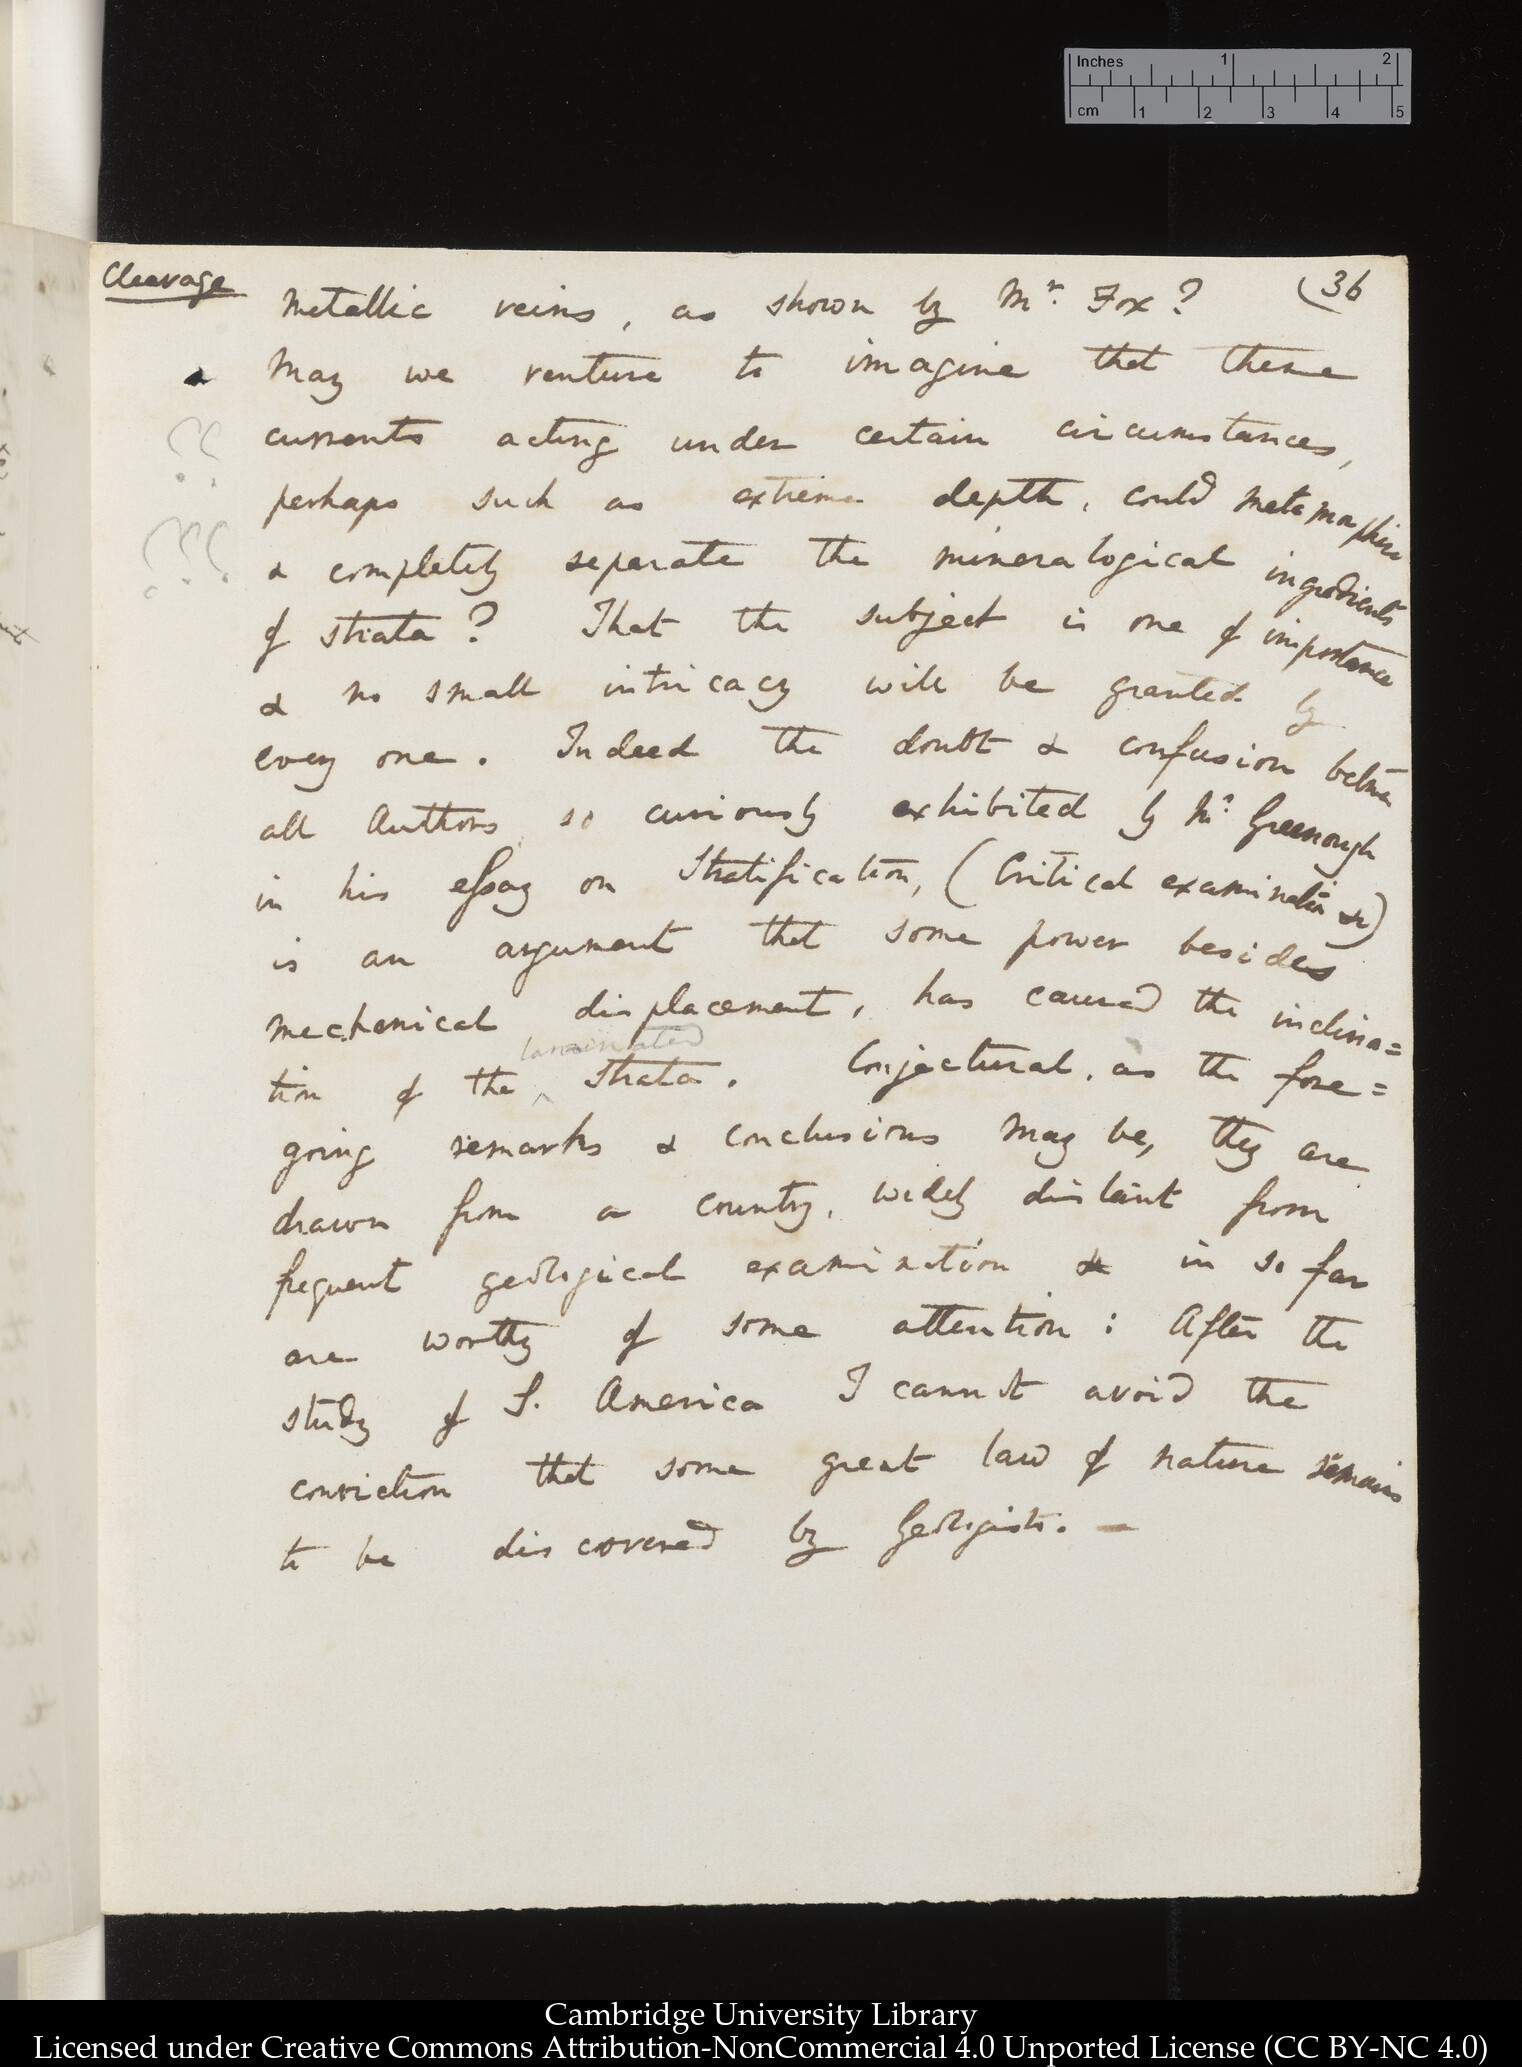 Inches 1 2
cm 1 2 3 4 5
Cleavage
(36
metallic veins, as shown by Mr. Fox?
May we venture to imagine that these
currents acting under certain circumstances,
??
perhaps such as extreme depth, could metamorphise
???
& completely separate the mineralogical ingredients
of strata? That the subject is one of importance
& no small intricacy will be granted by
every one. Indeed the doubt & confusion between
all Authors so curiously exhibited by Mr. Greenough
in his essay on Stratification, (Critical examination &c)
is an argument that some power besides
mechanical displacement, has caused the inclina=
laminated
tion of the ^ strata. Conjectural, as the fore=
going remarks & conclusions may be, they are
drawn from a country, widely distant from
frequent geological examination & in so far
are worthy of some attention: After the
study of S. America I cannot avoid the
conviction that some great law of nature remains
to be discovered by Geologists. —
Cambridge University Library
Licensed under Creative Commons Attribution-NonCommercial 4.0 Unported License (CC BY-NC 4.0)